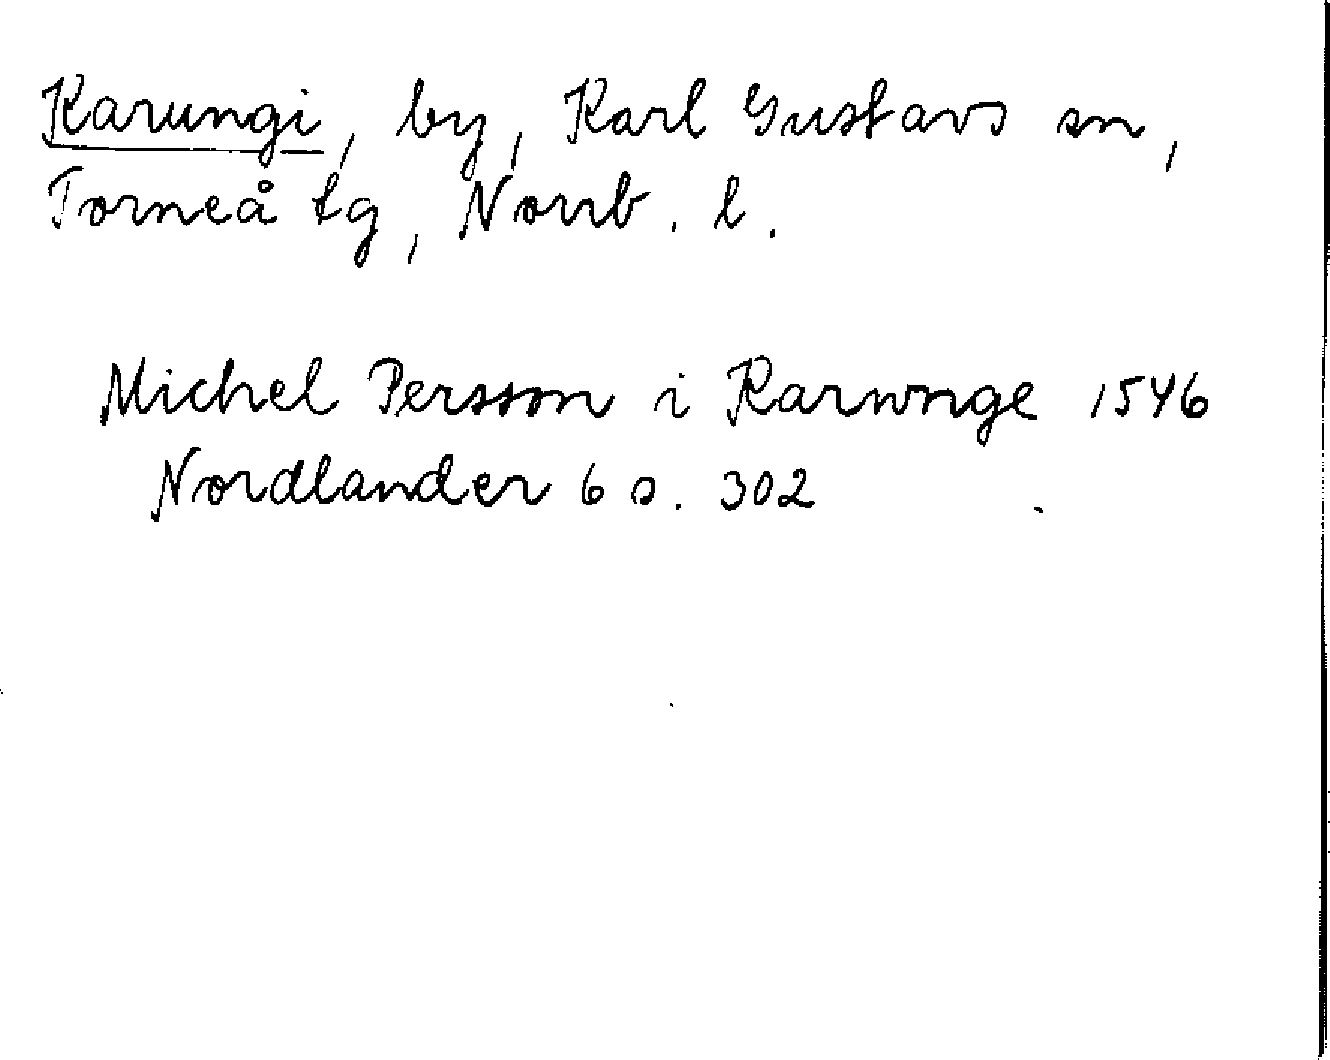 Karungi, by, Karl Gustavs sn,
Torneå tg, Norrb. l.
Michel Persson i Karwnge 1546
Nordlander 6 s. 302